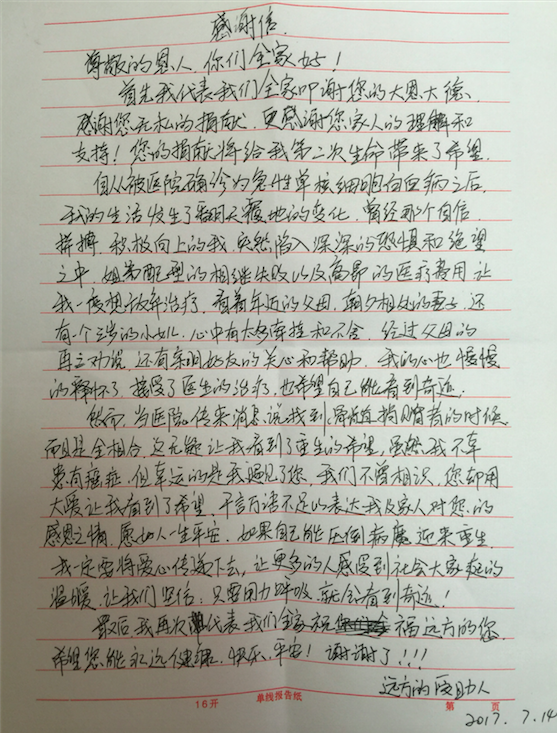 感谢信
尊敬的恩人，你们全家好！
首先我代表我们全家叩谢您的大恩大德，
感谢您无私的捐献，更感谢您家人的理解和
支持！您的捐献将给我第二次生命带来了希望。
自从被医院确诊为急性单核细胞白血病之后，
我的生活发生了翻天覆地的变化，曾经那个自信、
拼搏、积极向上的我，突然陷入深深的恐惧和绝望
之中，姐弟配型的相继失败以及高昂的医疗费用让
我一度想放弃治疗，看着年迈的父母，朝夕相处的妻子，还
有一个三岁的小女儿，心中有太多牵挂和不舍，经过父母的
再三劝说，还有亲朋好友的关心和帮助，我的心也慢慢
的释怀了，接受了医生的治疗，也希望自己能看到奇迹。
然而，当医院传来消息，说找到骨髓捐献者的时候，
而且是全相合，这无疑让我看到了重生的希望，虽然我不幸
患有癌症，但幸运的是我遇见了您，我们不曾相识，您却用
大爱让我看到了希望，千言万语不足以表达我及家人对您的
感恩之情，愿好人一生平安，如果自己能压倒病魔，迎来重生，
我一定要将爱心传递下去，让更多的人感受到社会大家庭的
温暖，让我们坚信：只要用力呼吸，就会看到奇迹！
最后我再次代表我们全家祝福远方的您，
希望您能永远健康、快乐、平安！谢谢了！！！
远方的受助人
2017.7.14
16开 单线报告纸 第 页